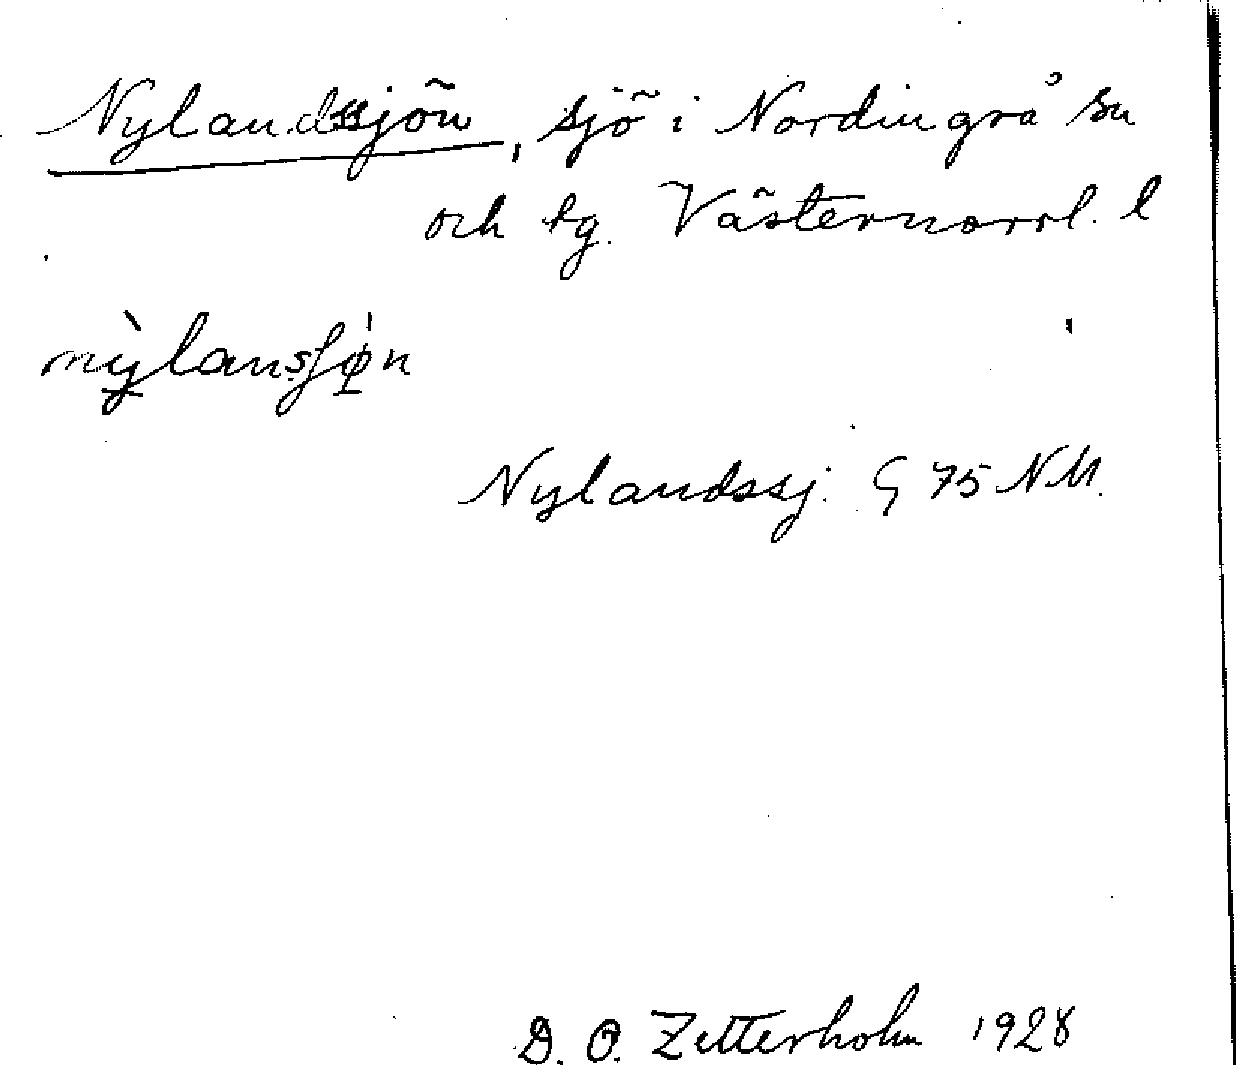 Nylandssjön, sjö i Nordingrå sn
och tg. Västernorrl. l
nỳlansʃø̀n
Nylandssj. G 75 NM.
D. O. Zetterholm 1928